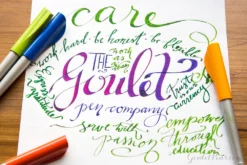 care
work hard · be honest · be flexible
work as a team
THE
Goulet
pen company
trust is our currency
serve with passion
empower through education
GouletPens.com